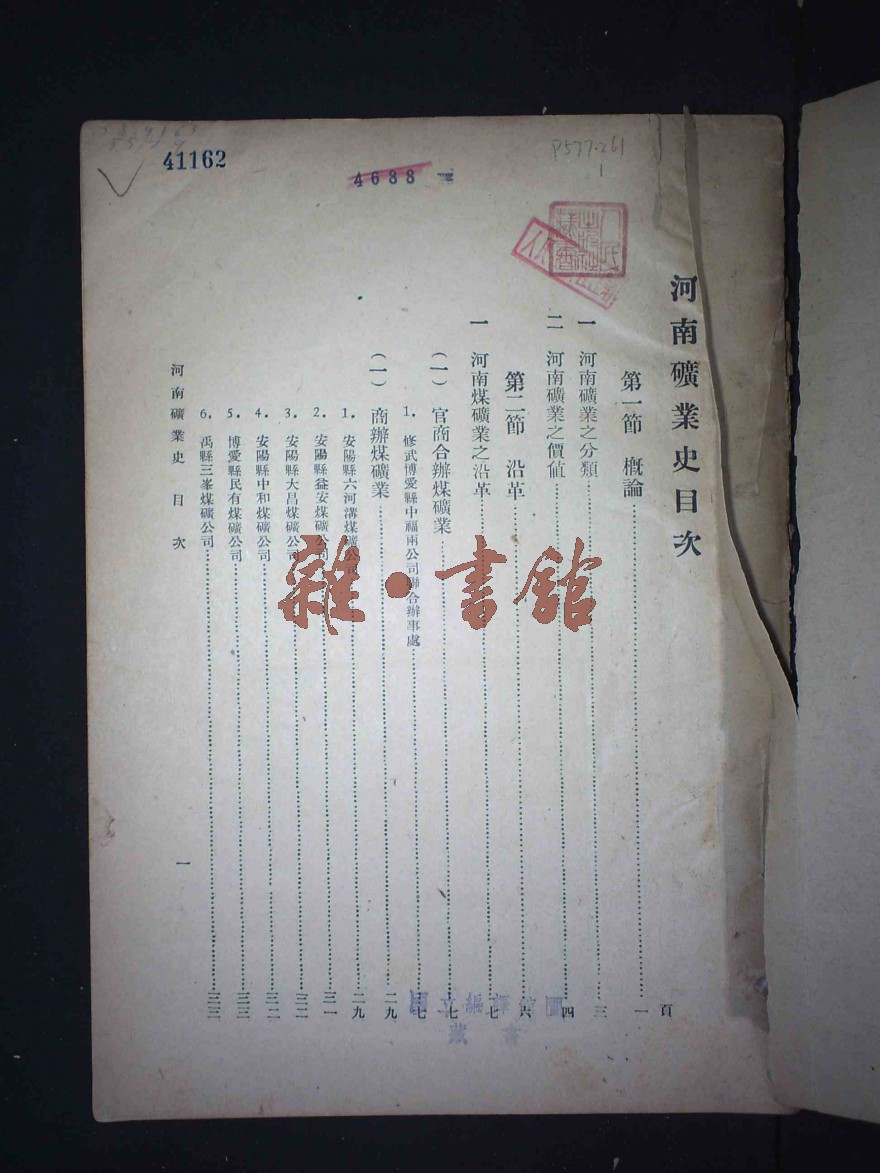 41162
4688
P577.261
1
河南礦業史目次
頁
第一節 概論……一
一 河南礦業之分類……三
二 河南礦業之價值……四
第二節 沿革……六
一 河南煤礦業之沿革……七
(一) 官商合辦煤礦業……七
1. 修武博愛縣中福兩公司聯合辦事處……七
(一) 商辦煤礦業……二九
1. 安陽縣六河溝煤礦公司……二九
2. 安陽縣益安煤礦公司……三一
3. 安陽縣大昌煤礦公司……三二
4. 安陽縣中和煤礦公司……三二
5. 博愛縣民有煤礦公司……三三
6. 禹縣三峯煤礦公司……三三
河南礦業史 目次
一
雜·書館